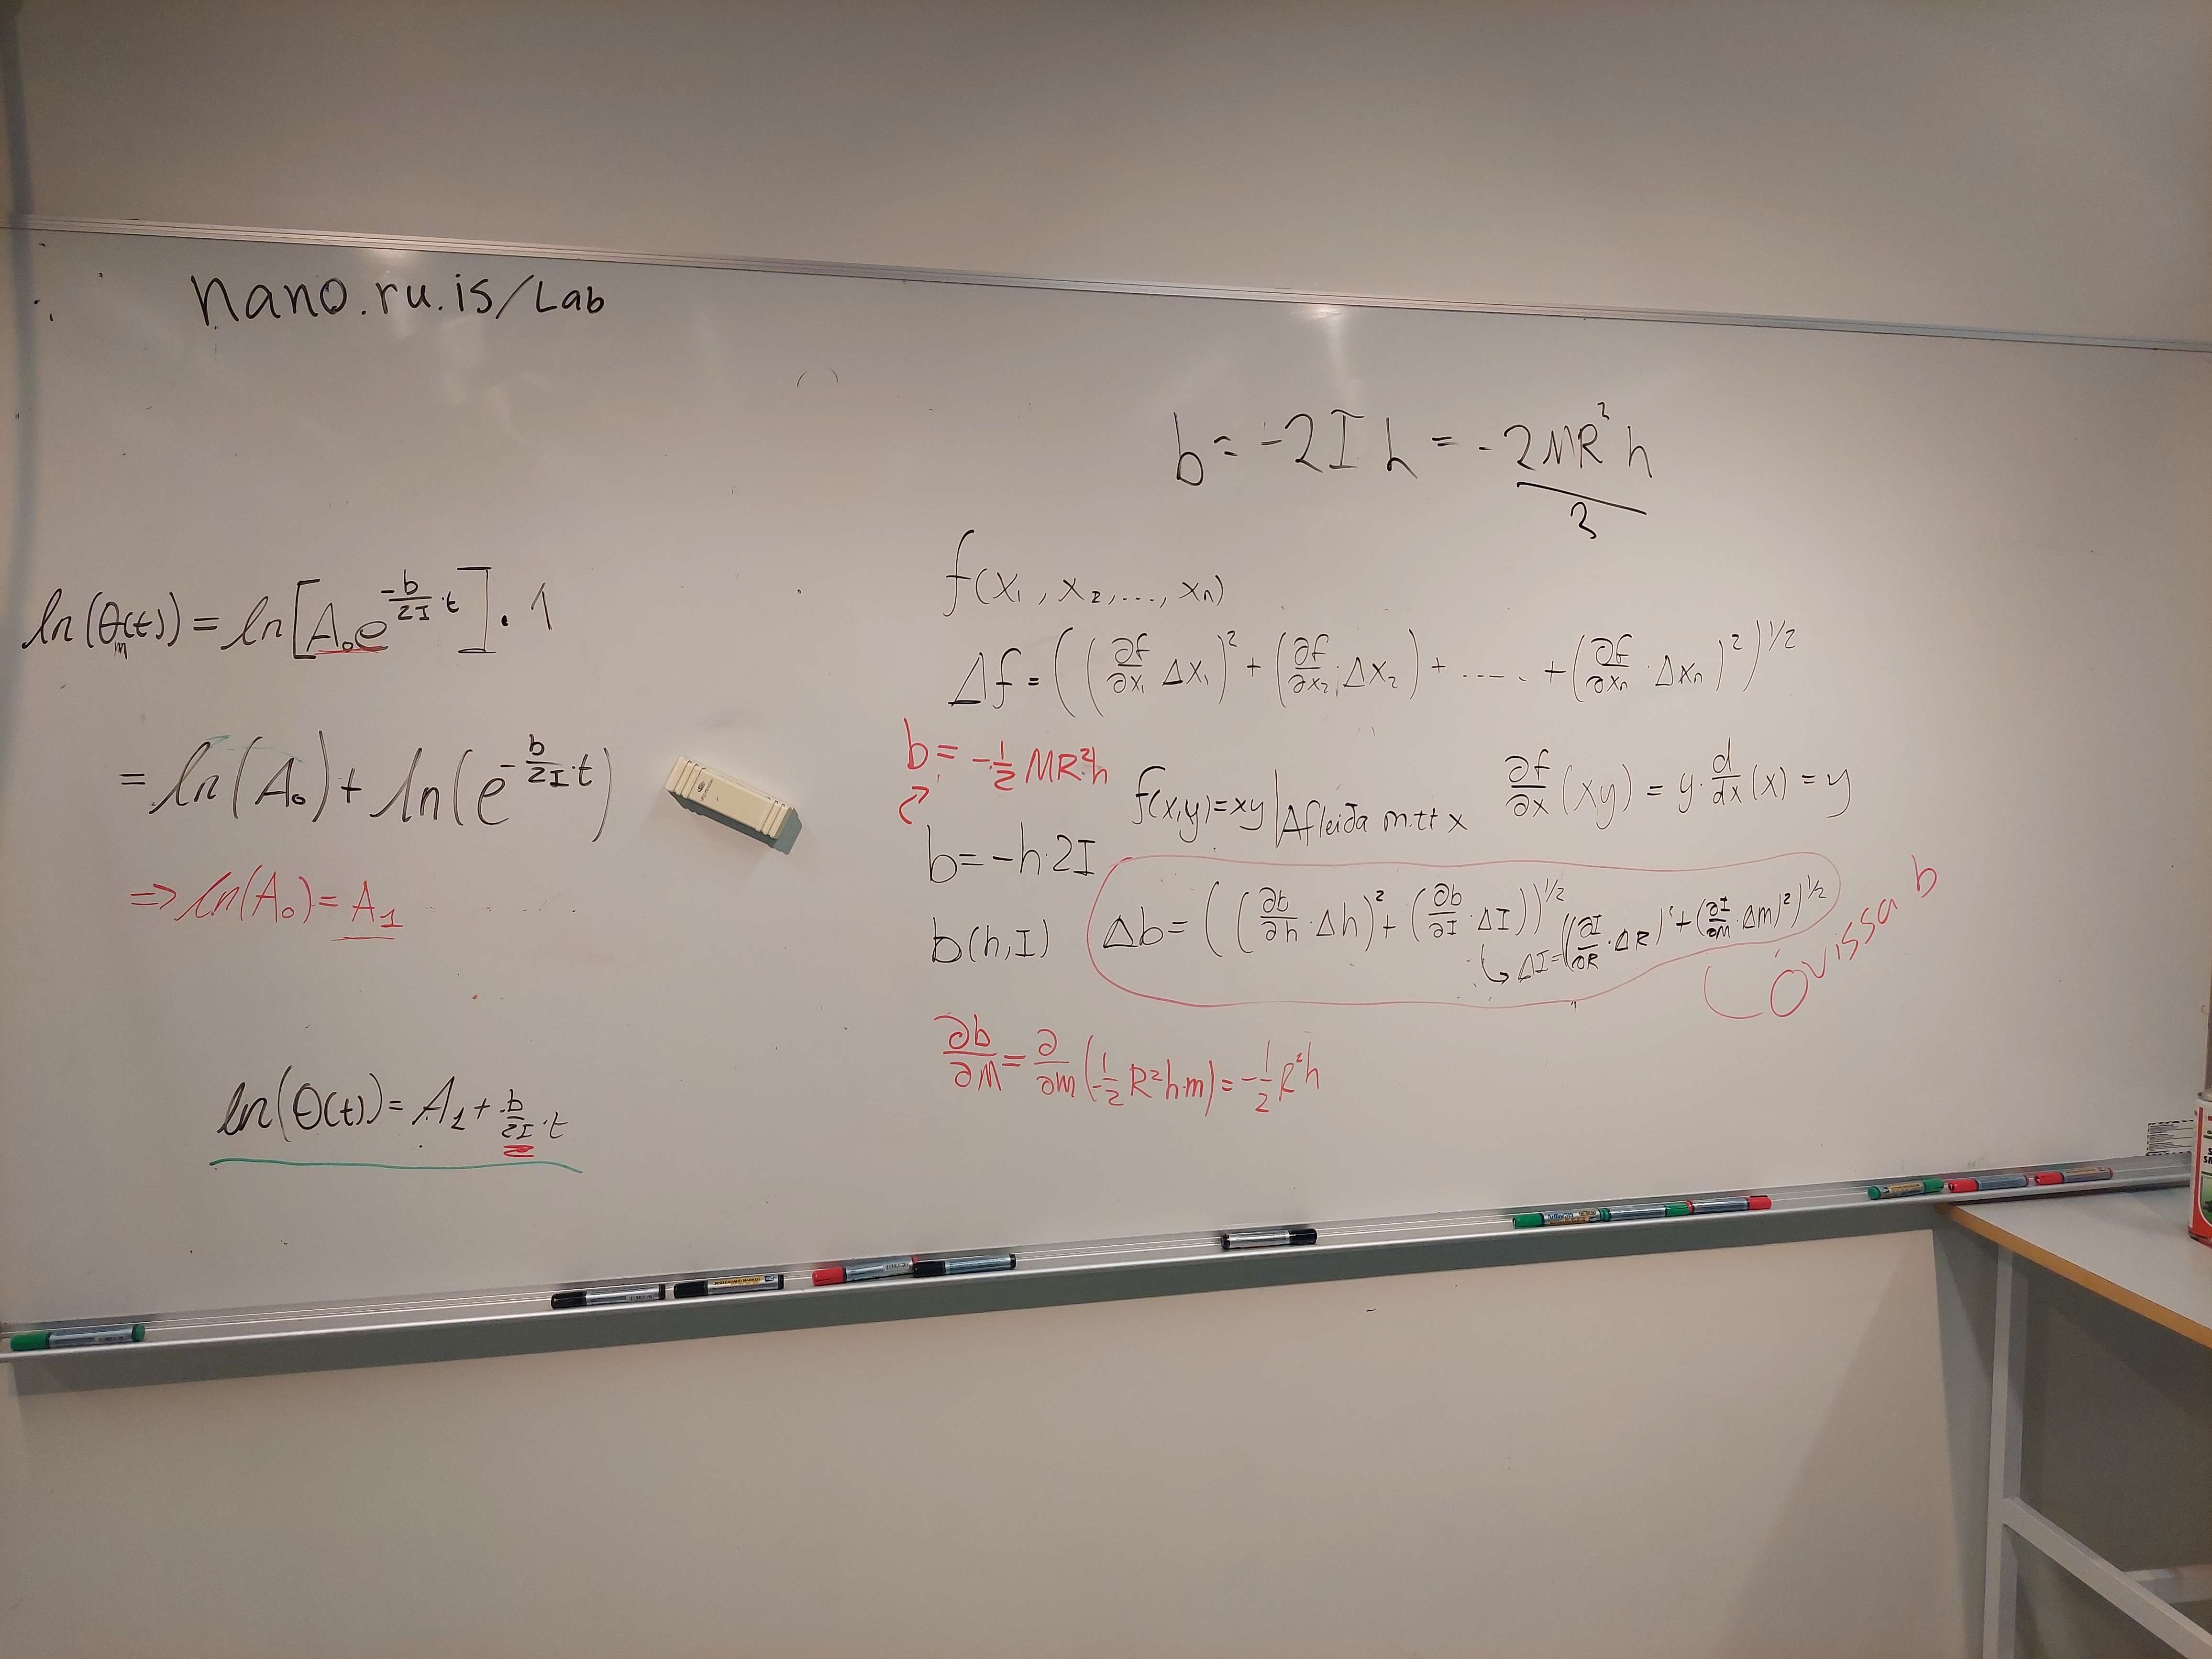 nano.ru.is/Lab
ln(θₘ(t)) = ln[A₀e^(-b/2I·t)]·1
= ln(A₀) + ln(e^(-b/2I·t))
=> ln(A₀) = A₁
ln(θ(t)) = A₁ + -b/2I·t
b = -2Ih = -2MR²h/3
f(x₁, x₂, ..., xₙ)
Δf = ((∂f/∂x₁ Δx₁)² + (∂f/∂x₂·Δx₂) + ..... + (∂f/∂xₙ·Δxₙ)²)^1/2
b = -1/2 MR²h
f(x,y) = xy | Afleiða m.t.t x ∂f/∂x (xy) = y·d/dx (x) = y
b = -h·2I
b(h,I) Δb = ((∂b/∂h·Δh)² + (∂b/∂I·ΔI))^1/2
↳ ΔI = ((∂I/∂R·ΔR)² + (∂I/∂M·Δm)²)^1/2
Óvissa b
∂b/∂M = ∂/∂m (-1/2 R²h·m) = -1/2 R²h